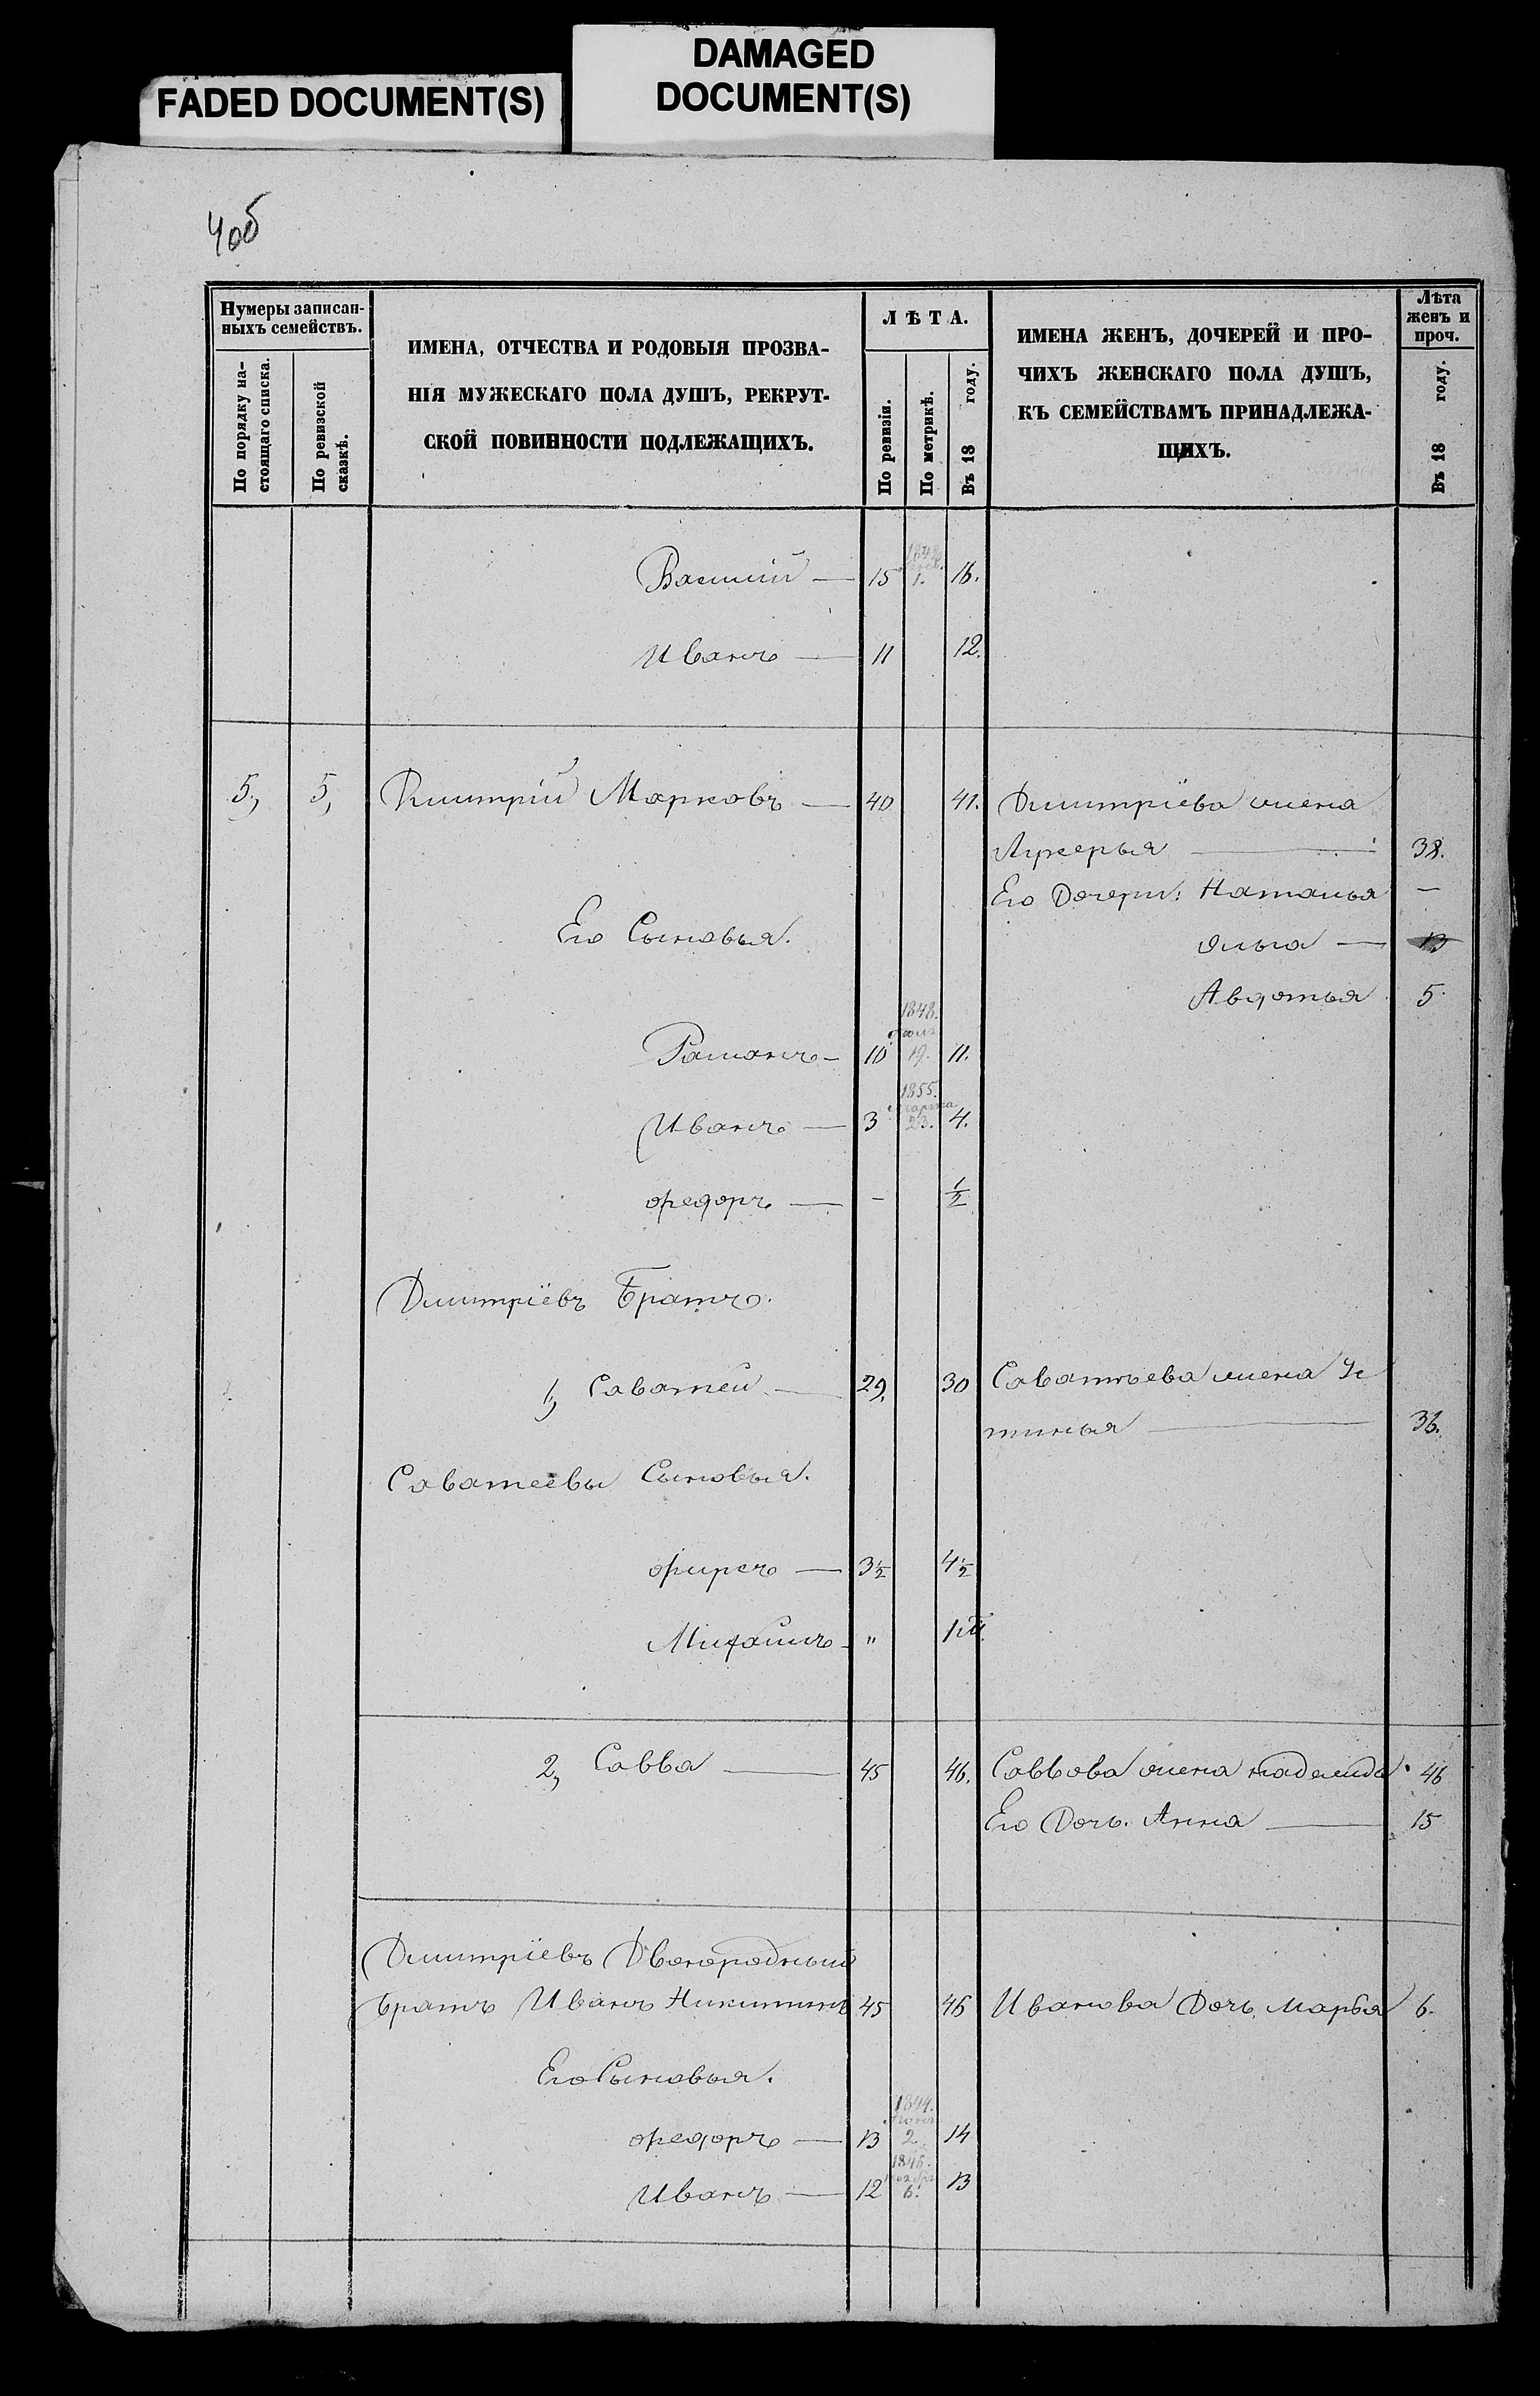 FADED DOCUMENT(S)
DAMAGED
DOCUMENT(S)
4об
Нумеры записан-
ныхъ семействъ.
По порядку на-
стоящаго списка.
По ревизской
сказкѣ.
ИМЕНА, ОТЧЕСТВА И РОДОВЫЯ ПРОЗВА-
НІЯ МУЖЕСКАГО ПОЛА ДУШЪ, РЕКРУТ-
СКОЙ ПОВИННОСТИ ПОДЛЕЖАЩИХЪ.
ЛѢТА.
По ревизіи.
По метрикѣ.
Въ 18 году.
ИМЕНА ЖЕНЪ, ДОЧЕРЕЙ И ПРО-
ЧИХЪ ЖЕНСКАГО ПОЛА ДУШЪ,
КЪ СЕМЕЙСТВАМЪ ПРИНАДЛЕЖА-
ЩИХЪ.
Лѣта
женъ и
проч.
Въ 18 году.
Василій — 15 1. 16.
Иванъ — 11 12.
5, 5, Дмитрій Марковъ — 40 41. Дмитріева жена
Лукерья — 38.
Его Дочери: Наталья —
Его Сыновья.
Ольга — 13
Авдотья 5.
1848.
Романъ — 10 19. 11.
1855.
марта
Иванъ — 3 23. 4.
Ѳедоръ — - 1/2
Дмитріевъ Братъ.
1, Саватей — 29. 30 Саватѣева жена Ус
тинья — 36.
Саватеевы Сыновья.
Фирсъ — 3 1/2 4 1/2
Михаилъ - "
2, Савва — 45 46. Саввова жена Надежда 46
Его Дочь. Анна — 15
Дмитріевъ Двоюродный
братъ Иванъ Никитинъ 45 46 Иванова Дочь, Марья 6.
Его Сыновья.
1844.
Ѳедоръ — 13 2. 14
1845.
ноября
Иванъ — 12 6. 13